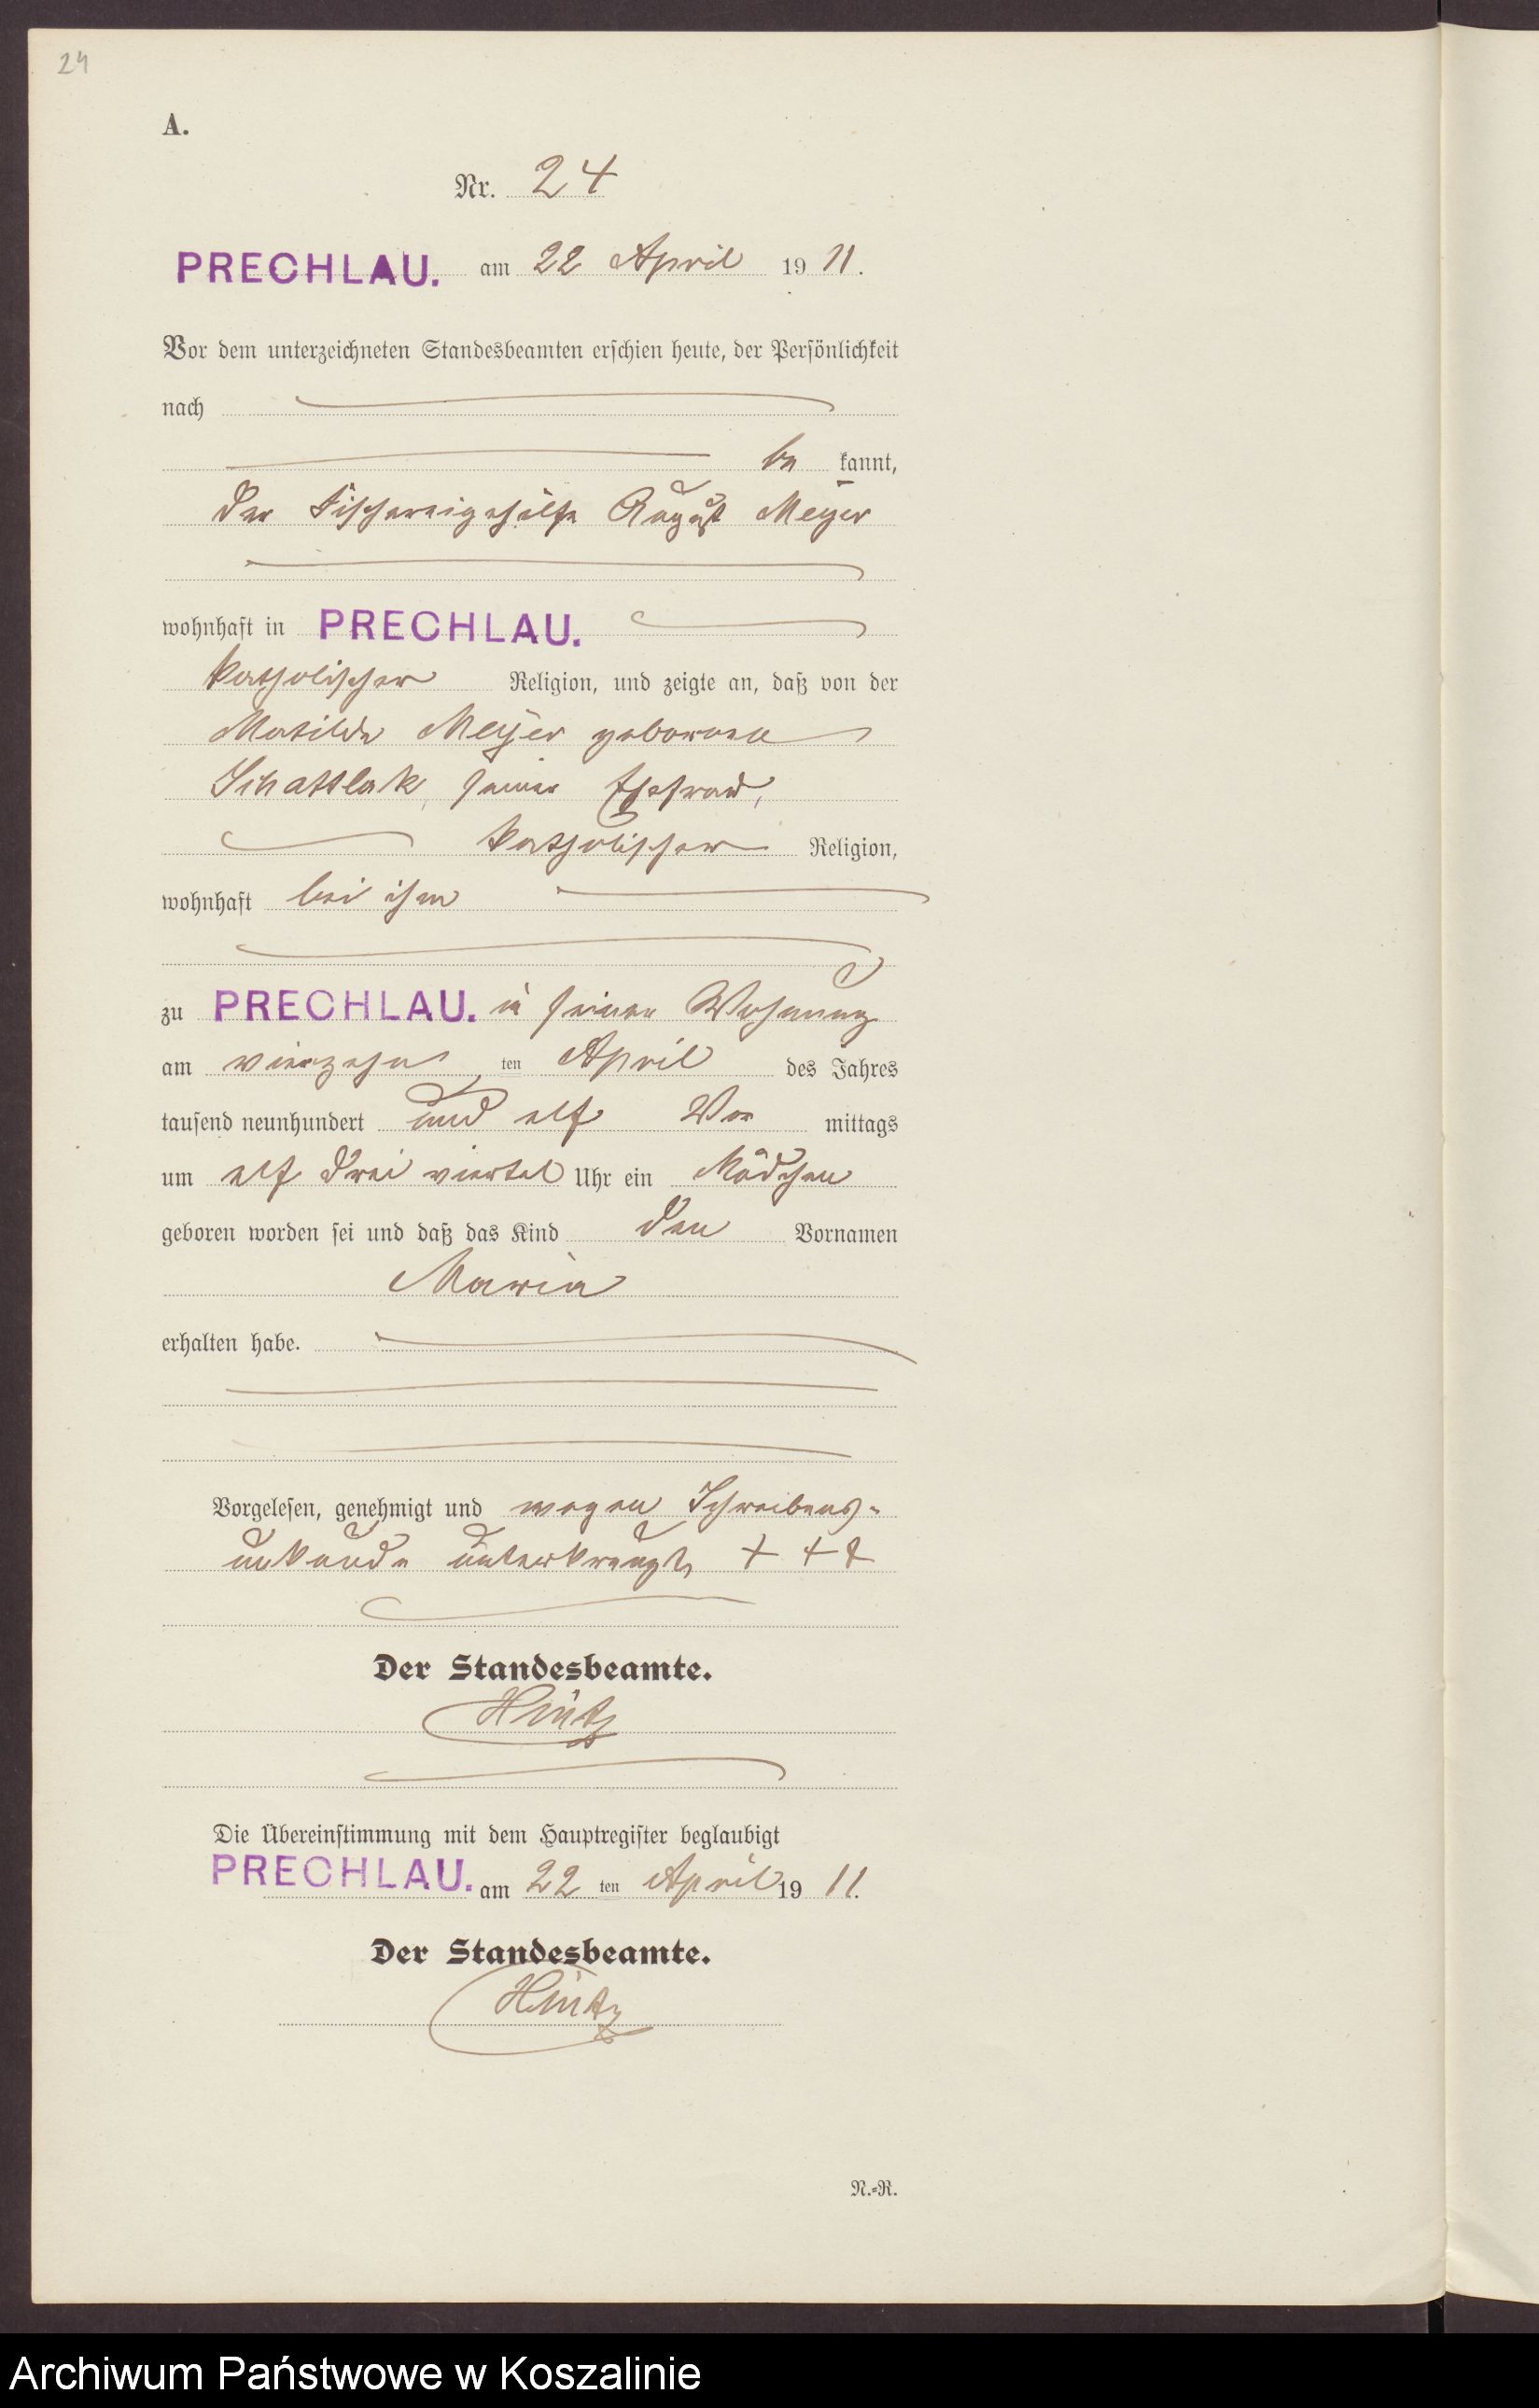 24
A.
Nr. 24
PRECHLAU. am 22 April 19 11.
Vor dem unterzeichneten Standesbeamten erschien heute, der Persönlichkeit
nach
be kannt,
Der Fischereigehilfe August Meyer
wohnhaft in PRECHLAU.
katholischer Religion, und zeigte an, daß von der
Matilde Meyer geborenen
Schattlak, seiner Ehefrau,
katholischer Religion,
wohnhaft bei ihm
zu PRECHLAU. in seiner Wohnung
am vierzehn ten April des Jahres
tausend neunhundert und elf Vor mittags
um elf drei viertel Uhr ein Mädchen
geboren worden sei und daß das Kind den Vornamen
Maria
erhalten habe.
Vorgelesen, genehmigt und wegen Schreibens-
unkunde unterkreuzt, + + +
Der Standesbeamte.
Hintz
Die Übereinstimmung mit dem Hauptregister beglaubigt
PRECHLAU. am 22 ten April 19 11.
Der Standesbeamte.
Hintz
N.-R.
Archiwum Państwowe w Koszalinie